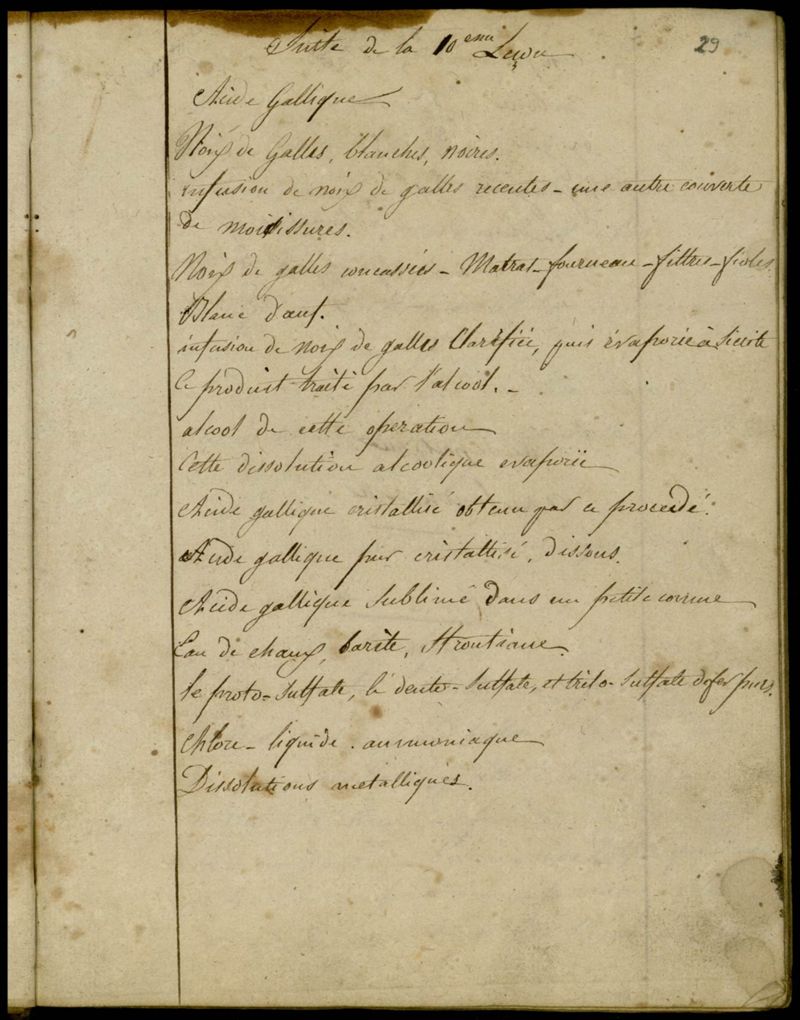 29
Suite de la 10eme Leçon
Acide Gallique
Noix de Galles, blanches, noires.
infusion de noix de galles recentes - une autre couverte
de moisissures.
Noix de galles concassées - Matras - fourneau - filtres - fioles.
Blanc d'œuf.
infusion de noix de galles Clarifiée, puis évaporée à siccité
Ce produit traité par l'alcool. -
alcool de cette operation
Cette dissolution alcoolique evaporée
Acide gallique cristallisé obtenu par ce procedé.
Acide gallique pur cristallisé, dissous.
Acide gallique sublimé dans une petite cornue
Eau de chaux, barite, Strontiane.
le proto-sulfate, le deuto-sulfate, et trito-sulfate de fer purs.
Chlore - liquide. ammoniaque
Dissolutions metalliques.